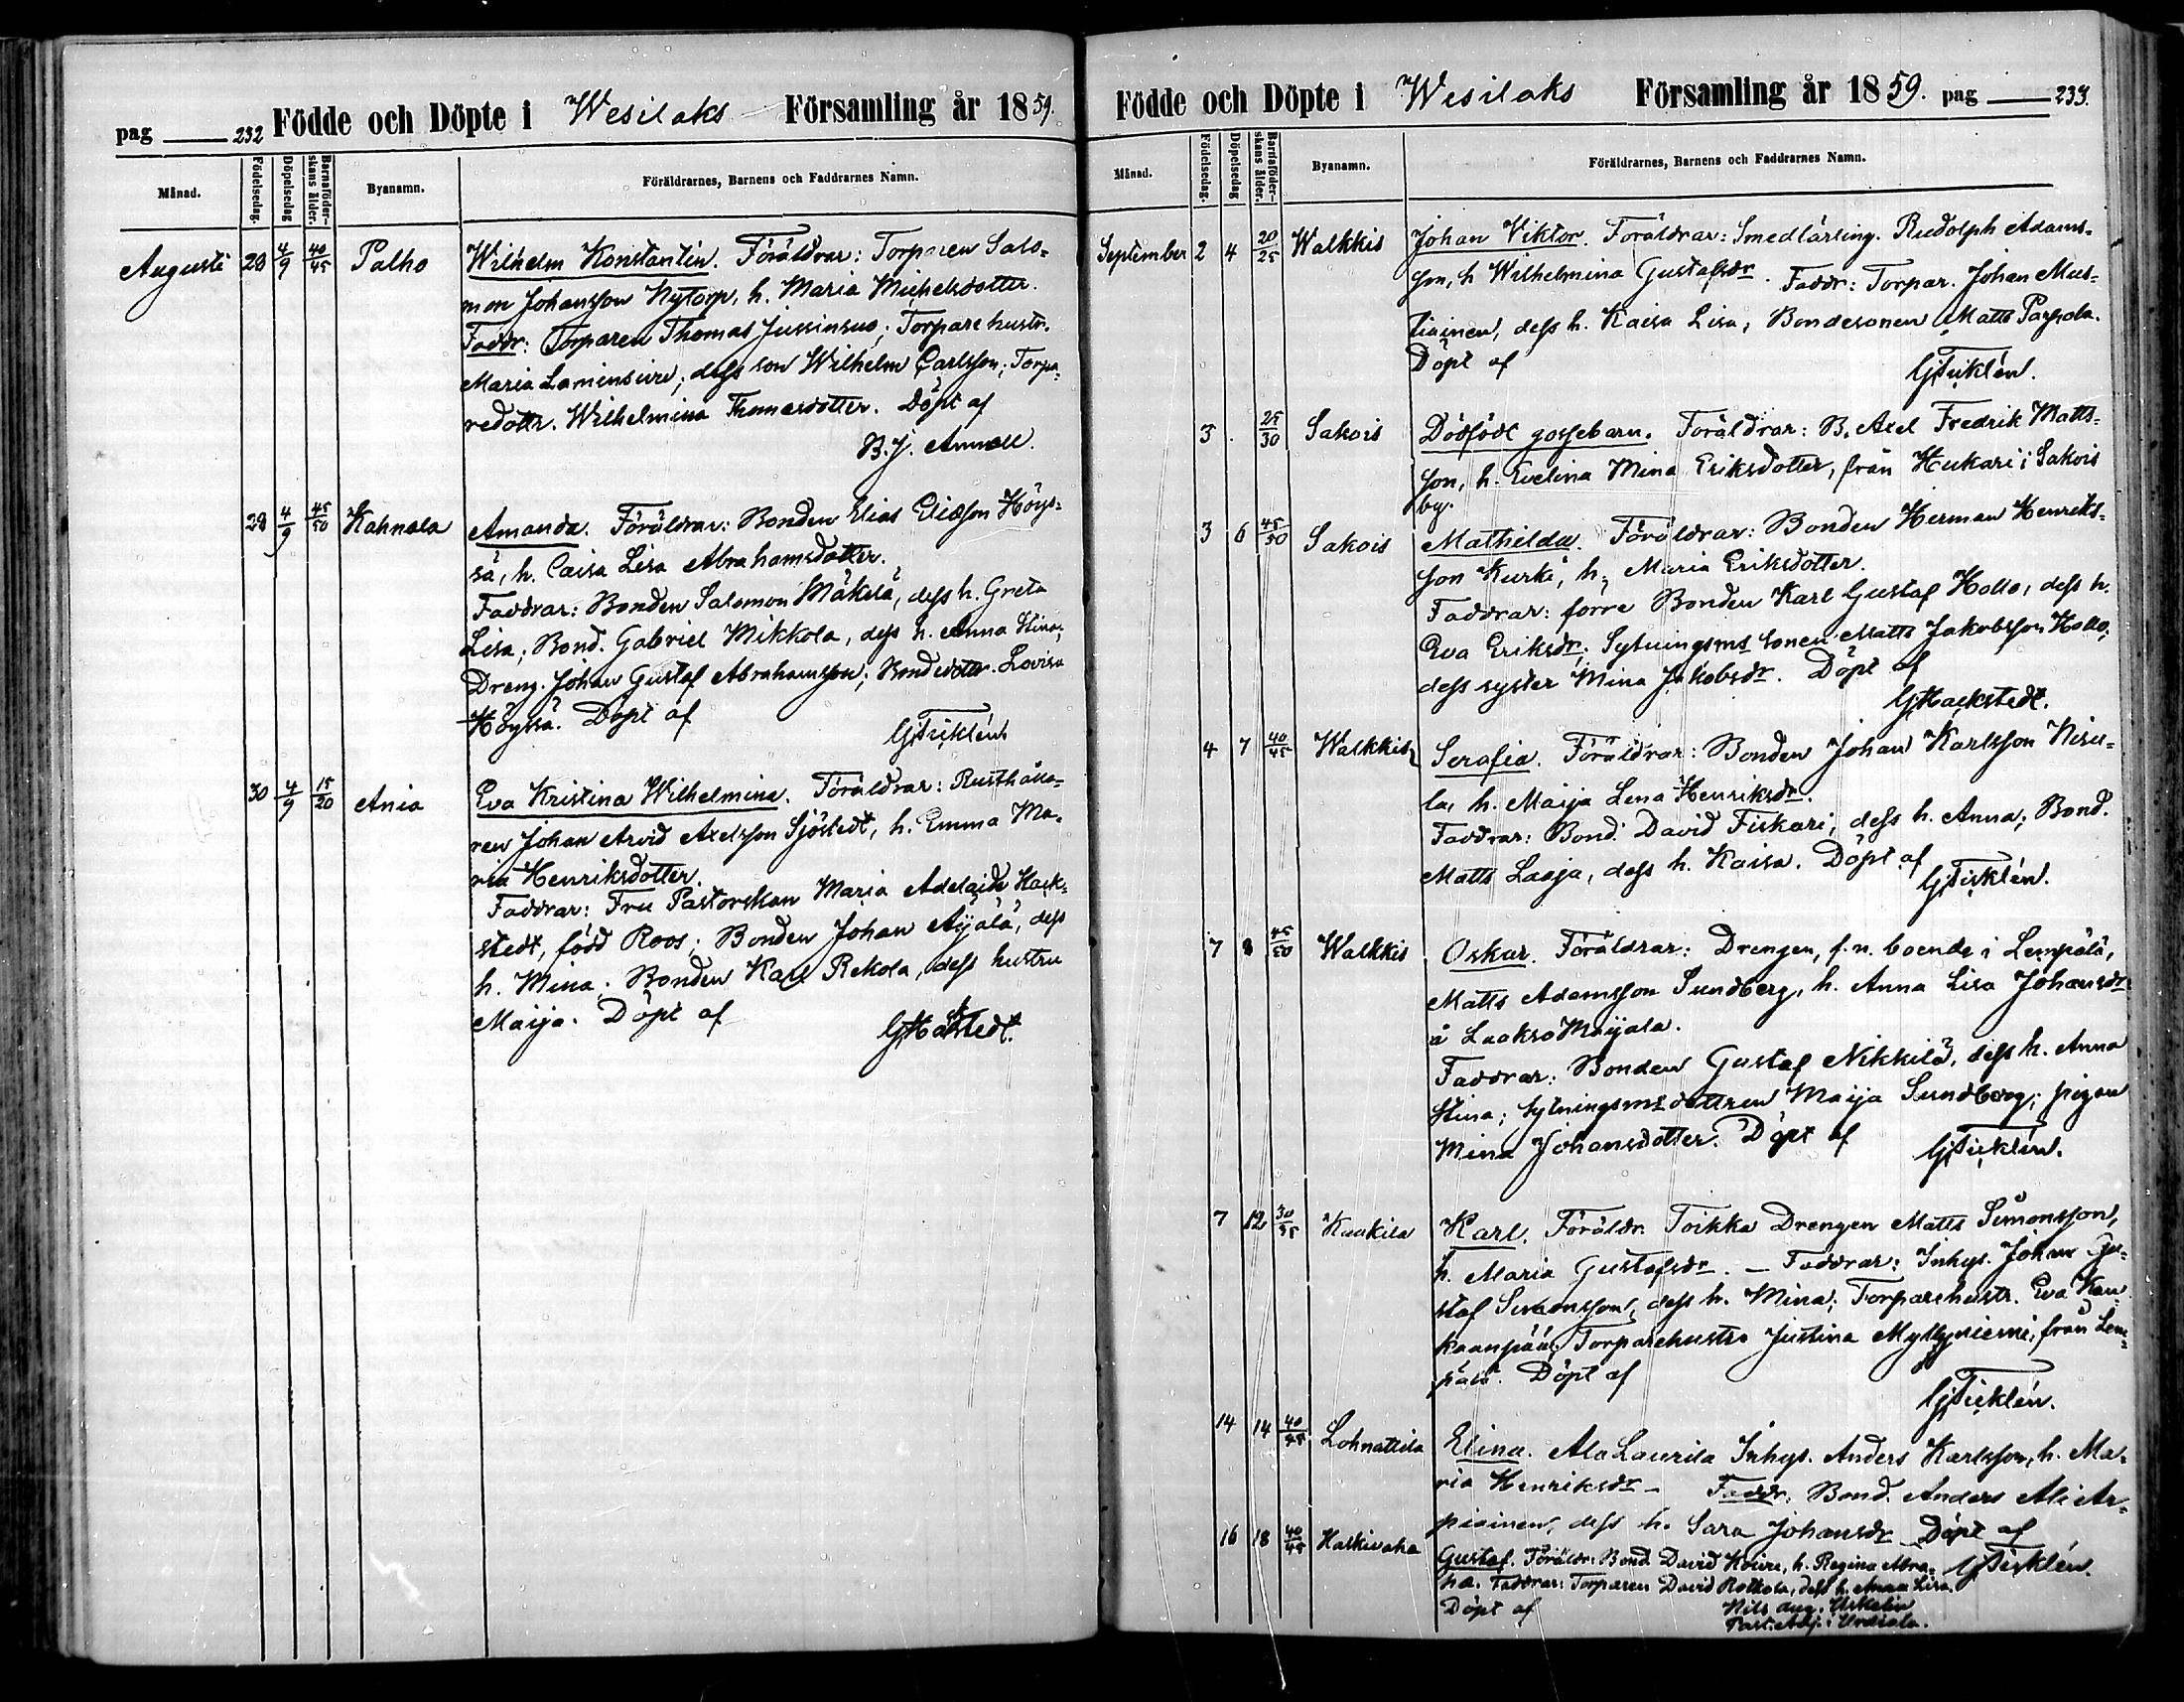 pag 232 Födde och Döpte i Wesilaks Församling år 1859.
Månad. Födelsedag. Döpelsedag Barnaföderskans ålder. Byanamn. Föräldrarnes, Barnens och Faddrarnes Namn.
Augusti 28 4/9 40/45 Palho Wilhelm Konstantin. Föräldrar: Torparen Salo-
mon Johansson Nytorp, h. Maria Michelsdotter.
Faddr: Torparen Thomas Jussinsuo; Torparehustr.
Maria; dess son Wilhelm Carlsson; Torpa-
redottr. Wilhelmina Thomasdotter. Döpt af
B. J. Annell.
28 4/9 45/50 Kahnala Amanda. Föräldrar: Bonden Elias Eliasson Höys-
sä, h. Caisa Lisa Abrahamsdotter.
Faddrar: Bonden Salomon Mäkelä, dess h. Greta
Lisa; Bond. Gabriel Mikkola, dess h. Anna Stina;
Dreng. Johan Gustaf Abrahamsson; Bondedottr. Lovisa
Höyssä. Döpt af
G Ticklén.
30 4/9 15/20 Ania Eva Kristina Wilhelmina. Föräldrar: Rusthålla-
ren Johan Arvid Axelsson Sjöstedt, h. Emma Ma-
ria Henriksdotter.
Faddrar: Fru Pastorskan Maria Adelaide Hack-
stedt, född Roos; Bonden Johan Äijälä, dess
h. Mina; Bonden Karl Rekola, dess hustru
Maija. Döpt af
G Hackstedt.
Födde och Döpte i Wesilaks Församling år 1859. pag 233.
Månad. Födelsedag. Döpelsedag Barnaföderskans ålder. Byanamn. Föräldrarnes, Barnens och Faddrarnes Namn.
September 2 4 20/25 Walkkis Johan Viktor. Föräldrar: Smedlärling. Rudolph Adams-
son, h Wilhelmina Gustafsdr. Faddr: Torpar. Johan Mus-
tiainen, dess h. Kaisa Lisa; Bondesonen Matts Parpola.
Döpt af
G Ticklén.
3 . 25/30 Sakois Dödfödt gossebarn. Föräldrar: B. Axel Fredrik Matts-
son, h. Evelina Mina Eriksdotter, från Hukari i Sakois
by.
3 6 45/50 Sakois Mathilda. Föräldrar: Bonden Herman Henriks-
son Kurki, h. Maria Eriksdotter.
Faddrar: förre Bonden Karl Gustaf Hollo, dess h.
Eva Eriksdr; Sytningsms sonen Matts Jakobsson Hollo;
dess syster Mina Jakobsdr. Döpt af
G Hackstedt.
4 7 40/45 Walkkis Serafia. Föräldrar: Bonden Johan Karlsson Nisu-
la, h. Maija Lena Henriksdr.
Faddrar: Bond. David Fiskari, dess h. Anna; Bond.
Matts Laaja, dess h. Kaisa. Döpt af
G Ticklén.
7 8 45/50 Walkkis Oskar. Föräldrar: Drengen, f.n. boende i Lempälä,
Matts Adamsson Sundberg, h. Anna Lisa Johansdr
å Laakso Maijala.
Faddrar: Bonden Gustaf Nikkilä, dess h. Anna
Stina; Sytningsms dottren Maija Sundberg; pigan
Mina Johansdotter. Döpt af
G Ticklén.
7 12 30/35 Kaakila Karl. Föräldr. Toikka Drengen Matts Simonsson,
h. Maria Gustafsdr. — Faddrar: Inhys. Johan Gu-
staf Simonsson, dess h. Mina; Torparehustr. Eva Kan-
kaanpää; Torparehustru Justina Myllyniemi, från Lem-
pälä. Döpt af
G Ticklén.
14 14 40/45 Lohnattila Elina. Ala Laurila Inhys. Anders Karlsson, h. Ma-
ria Henriksdr — Faddr: Bond. Anders Ali Ar-
piainen, dess h. Sara Johansdr Döpt af
G Ticklén.
16 18 40/45 Gustaf. Föräldr: Bond. David, h. Regina Abra-
ha. Faddrar: Torparen David, dess h. Anna Lisa.
Döpt af Nils Aug. Uskelin
Past. Adj. i Urdiala.